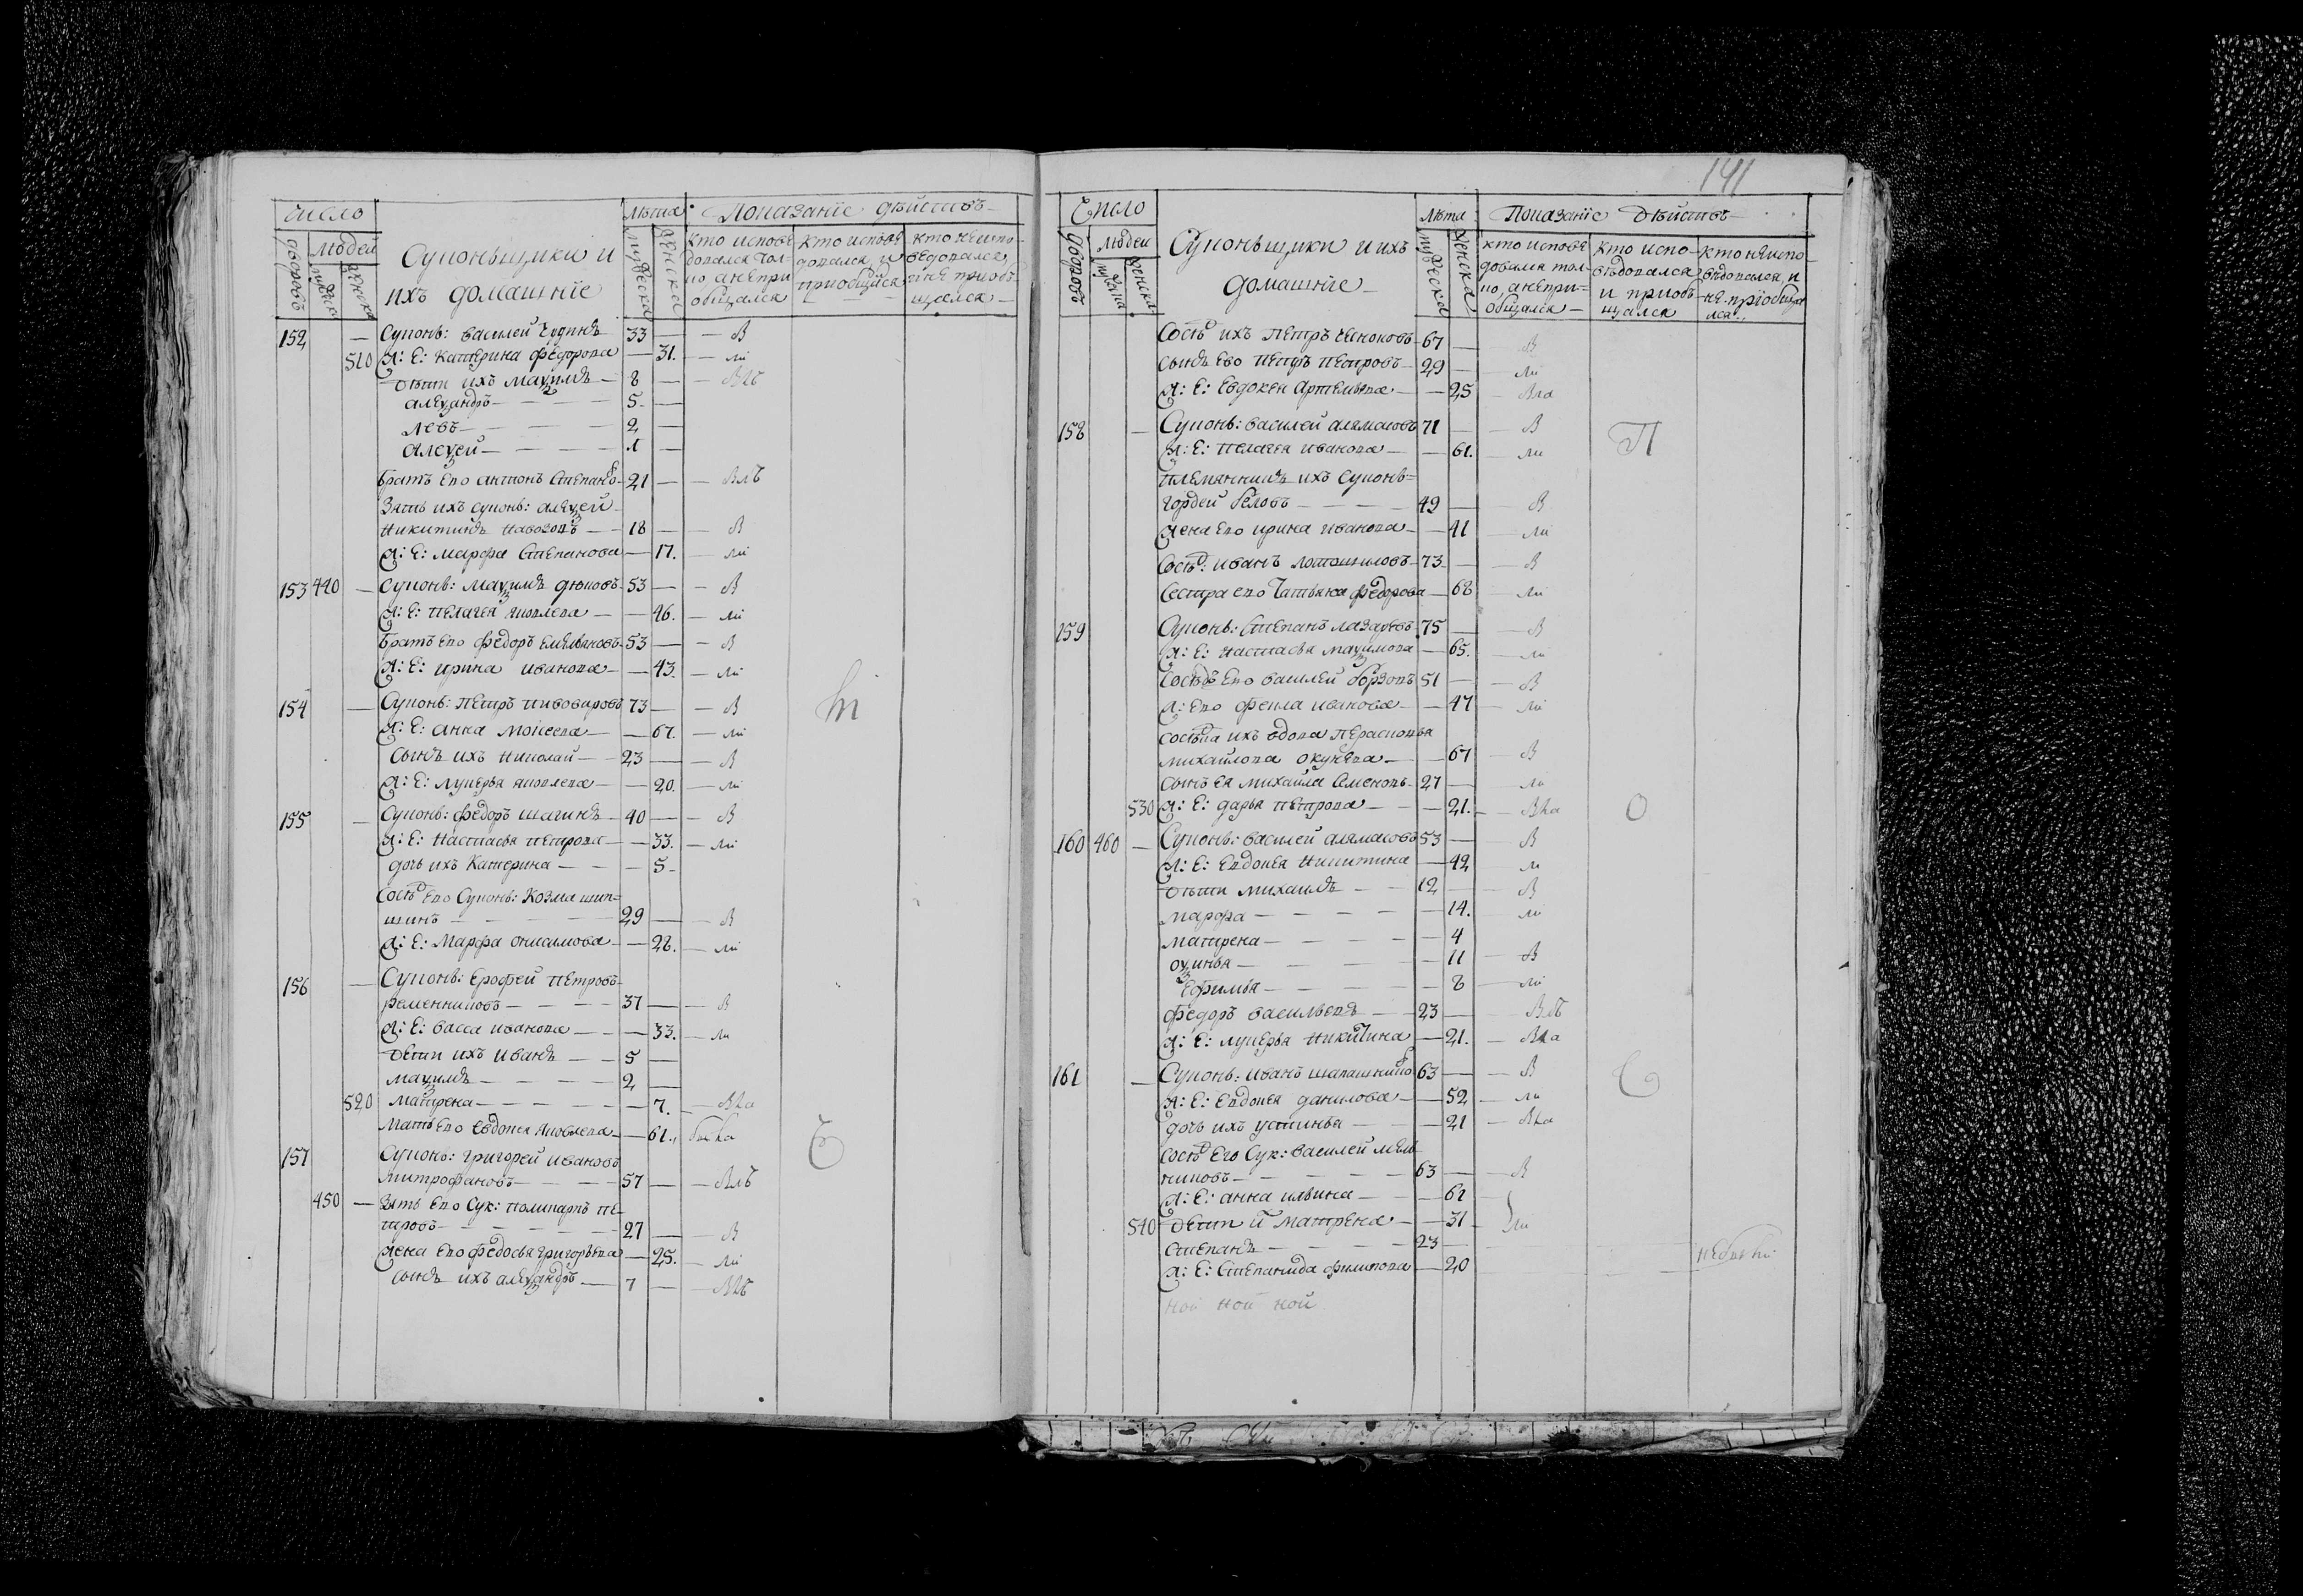 Число
Людей
дворовъ
мужеска
женска
Суконьщики и
ихъ домашнїе
Лѣта
мужеска
женска
Показанїе дѣйствъ
кто испове
довался тол-
ко а непри
общался
кто испове
довался и
приобщался
кто не испо-
ведовался
и не приоб-
щался
152 — Суконь: василей Чудинъ 33 — — В
510 Ж: Е: Катерина федорова — 31. — ли
дѣти ихъ Маѯимъ — 8 — — Влъ
алеѯандръ — 5 —
левъ — 2 —
Алеѯей — 1 —
братъ Ево антонъ Степано 21 — — Влъ
Зять ихъ суконь: алеѯей
Никитинъ 18 — — В
Ж: Е: марфа Степанова — 17. — ли
153 440 — Суконь: Маѯимъ дюковъ 53 — — В
Ж: Е: пелагея яковлева — 46. — ли
братъ Ево федоръ Емельяновъ 53 — — В
Ж: Е: ирина иванова — 43. — ли
154 — Суконь: Петръ пивоваровъ 73 — — В
Ж: Е: анна моисеева — 67. — ли
Сынъ ихъ николай — 23 — — В
Ж: Е: лукерья яковлева — 20. — ли
155 — Суконь: федоръ шагинъ 40 — — В
Ж: Е: Настасья петрова — 33. — ли
дочь ихъ Катерина — 5
Сосѣд Ево Суконь: Козма шип-
шинъ 29 — — В
Ж: Е: Марфа онисимова — 28. — ли
156 — Суконь: Ерофей петровъ
ременниковъ 37 — — В
Ж: Е: васса иванова — 33. — ли
Дети ихъ Иванъ — 5 —
маѯимъ — 2 —
520 матрена — 7. — Вла
Мать Ево Евдокея яковлева — 61.
157 Суконь: григорей ивановъ
митрофановъ 57 — — Влъ
450 — Зять Ево Сук: поликарпъ пе-
тровъ 27 — — В
жена Ево федосья григорьева — 25. — ли
Сынъ ихъ алеѯандръ — 7 — — Влъ
141
Число
Людей
дворовъ
мужеска
женска
Суконьщики и ихъ
домашнїе
Лѣта
мужеска
женска
Показанїе Дѣйствъ
кто испове
довался тол-
ко а непри-
общался
кто испо-
вѣдовался
и приоб-
щался
кто не испо-
вѣдовался и
не прїобща
лся
Сосѣд ихъ Петръ 67 — В
Сынъ Ево петръ петровъ 29 — ли
Ж: Е: Евдокея Артемьева — 25 Вла
158 — Суконь: василей алямаковъ 71 — В
Ж: Е: пелагея иванова — 61. ли
П
племянникъ ихъ суконь
гордей белов 49 — В
жена Ево ирина иванова — 41 — ли
Сосѣд: иванъ лотошниковъ 73 — В
Сестра ево Татьяна федорова — 68 — ли
159 Суконь: Степанъ лазаревъ 75 — В
Ж: Е: настасья маѯимова — 65. — ли
Сосѣдъ Ево василей борзовъ 51 — — В
Ж: Ево фекла иванова — 47 — ли
Сосѣтка ихъ вдова Парасковья
михайлова окунева — 67 — В
Сынъ Ея михайла Семеновъ 27 — ли
530 Ж: Е: дарья петрова — 21. — Вла
О
160 460 — Суконь: василей алямаковъ 53 — — В
Ж: Е: Евдокея Никитина — 42 — ли
дѣти михаилъ — 12 — В
марфа — 14. — ли
матрена — 4
оѯинья — 11 — В
Ефимья — 8 — ли
федоръ васильевъ 23 — Влъ
Ж: Е: лукерья никитина — 21. — Вла
161 — Суконь: иванъ шапашнико 63 — — В
Ж: Е: Евдокея данилова — 52 — ли
С
дочь ихъ устинья — 21 — Вла
Сосѣд Его Сук: василей мель
никовъ 63 — — В
Ж: Е: анна ильина — 61
540 Дети и матрена — 31 — ли
Степанъ 23 —
Ж: Е: Степанида филипова — 20
ной ной ной